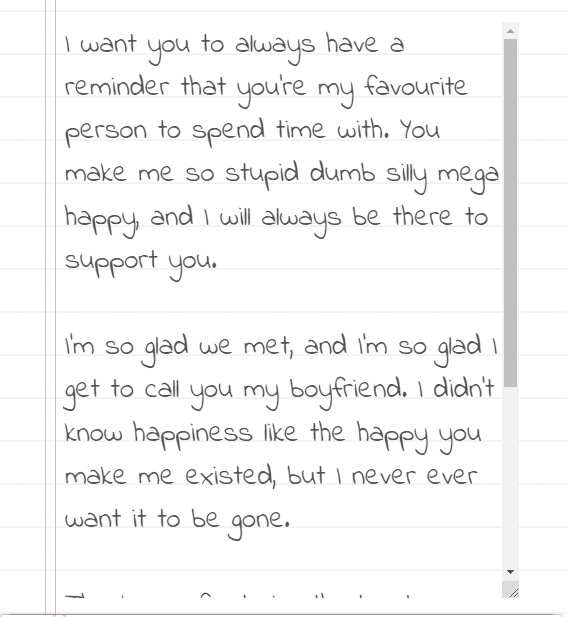 I want you to always have a
reminder that you're my favourite
person to spend time with. You
make me so stupid dumb silly mega
happy, and I will always be there to
support you.
I'm so glad we met, and I'm so glad I
get to call you my boyfriend. I didn't
know happiness like the happy you
make me existed, but I never ever
want it to be gone.